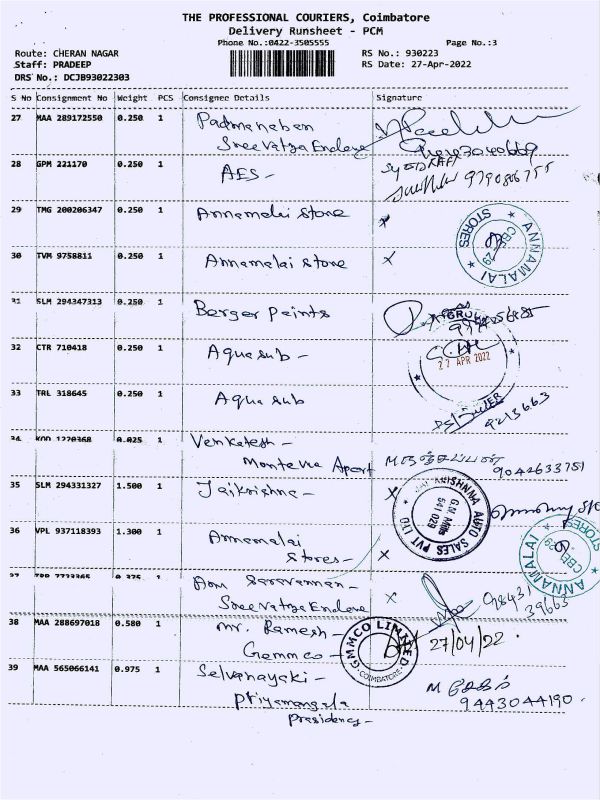 THE PROFESSIONAL COURIERS, Coimbatore
Delivery Runsheet - PCM
Phone No.:0422-3505555 Page No.:3
Route: CHERAN NAGAR RS No.: 930223
Staff: PRADEEP RS Date: 27-Apr-2022
DRS No.: DCJB93022303
S No Consignment No Weight PCS Consignee Details Signature
27 MAA 289172550 0.250 1 Padmanaban
Sree Vatza Enclave
28 GPM 221170 0.250 1 AES - SYED RAFI
9790806755
29 TMG 200206347 0.250 1 Annamalai Store x
ANNAMALAI STORES CBE-29
30 TVM 9758811 0.250 1 Annamalai Store x
31 SLM 294347313 0.250 1 Berger Paints
32 CTR 710418 0.250 1 Aquasub -
27 APR 2022
33 TRL 318645 0.250 1 Aquasub
9213663
34 KOD 1220368 0.025 1 Venkatesh -
Monteva Apart 9042633751
35 SLM 294331327 1.500 1 Jaikrishna - x
JAI KRISHNNA AUTO SALES PVT LTD G.N Mills 641 029
36 VPL 937118393 1.300 1 Annamalai
Stores - x
ANNAMALAI STORES CBE-29
37 0.375 1 Aom Saravanan -
Sree Vatza Enclave x
39663
38 MAA 288697018 0.580 1 Mr. Ramesh -
Gammco - GMMCO LIMITED COIMBATORE 27/04/22
39 MAA 565066141 0.975 1 Selvanayaki -
Priyamangala M சேகர்
Presidency - 9443044190